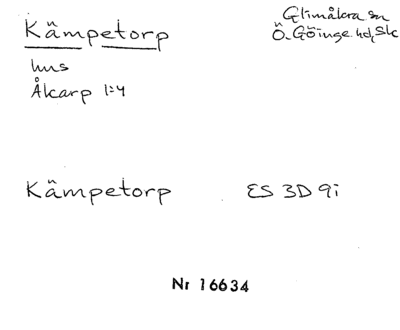 Kämpetorp
Glimåkra sn
Ö. Göinge hd, Sk
hus
Åkarp 1:4
Kämpetorp ES 3D 9i
Nr 16634